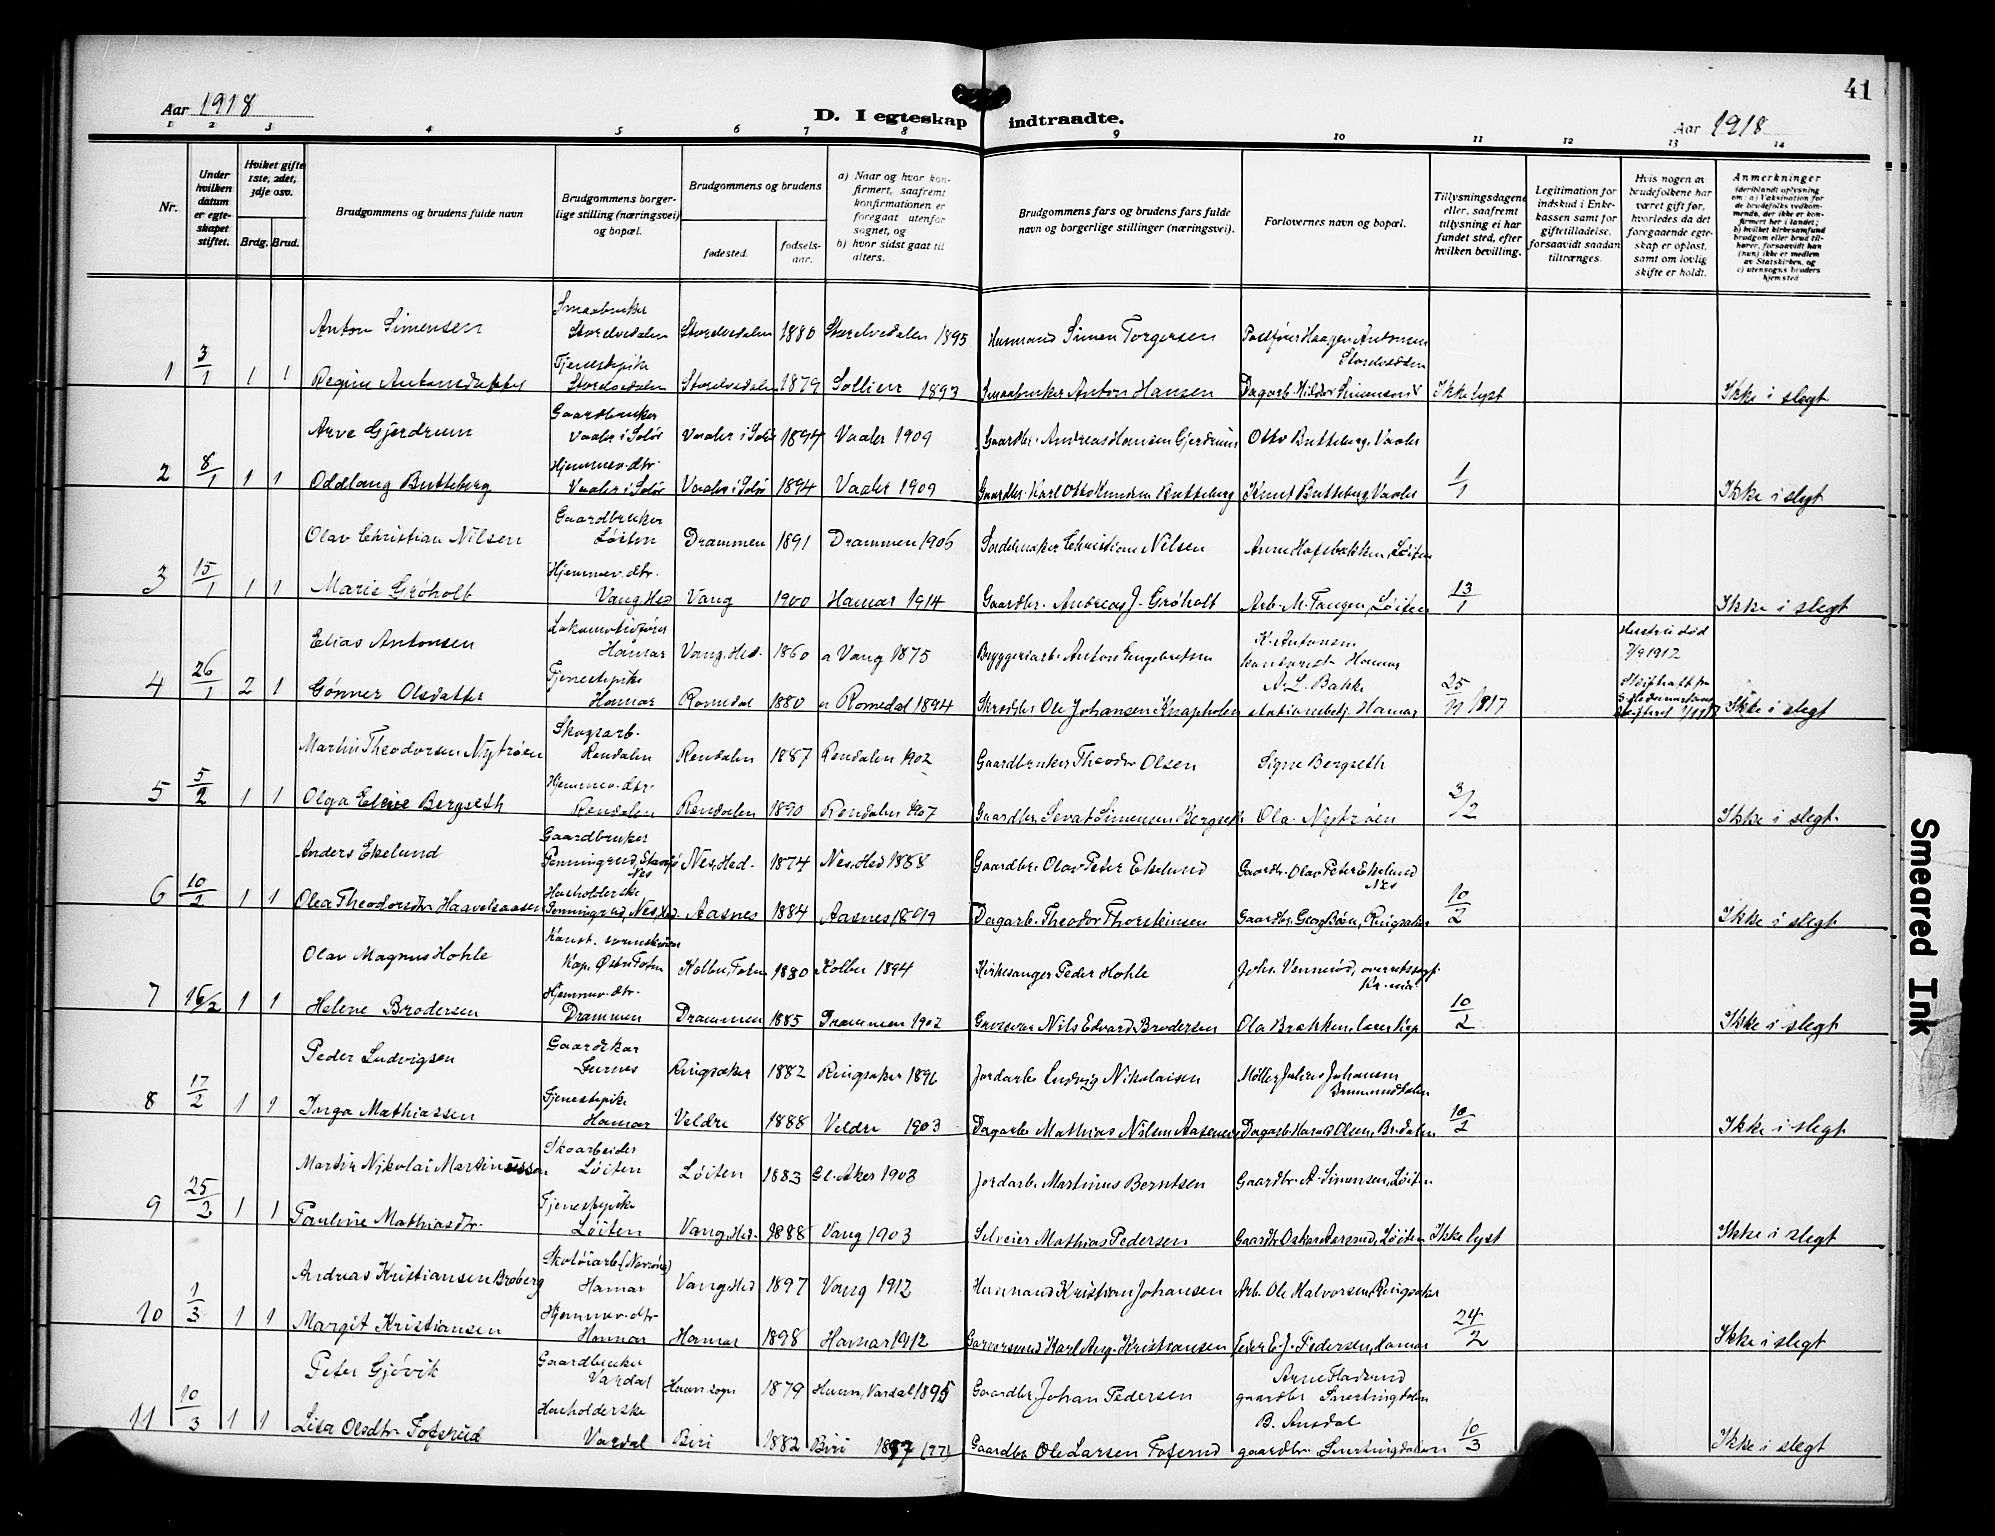 41
Aar 1918
D. I egteskap indtraadte.
Aar 1918
1 2 3 4 5 6 7 8 9 10 11 12 13 14
Nr.
Under hvilken datum er egteskapet stiftet.
Hvilket gifte 1ste, 2det, 3dje osv.
Brdg. Brud.
Brudgommens og brudens fulde navn
Brudgommens borgerlige stilling (næringsvei) og bopæl.
Brudgommens og brudens
fødested.
fødselsaar.
a) Naar og hvor konfirmert, saafremt konfirmationen er foregaat utenfor sognet, og
b) hvor sidst gaat til alters.
Brudgommens fars og brudens fars fulde navn og borgerlige stillinger (næringsvei).
Forlovernes navn og bopæl.
Tillysningsdagene eller, saafremt tillysning ei har fundet sted, efter hvilken bevilling.
Legitimation for indskud i Enkekassen samt for giftetilladelse, forsaavidt saadan tiltrænges.
Hvis nogen av brudefolkene har været gift før, hvorledes da det foregaaende egteskap er opløst, samt om lovlig skifte er holdt.
Anmerkninger
(deriblandt oplysning om: a) Vaksination for de brudefolks vedkommende, der ikke er konfirmert her i landet; b) hvilket kirkesamfund brudgom eller brud tilhører, forsaavidt han (hun) ikke er medlem av Statskirken, og c) utensogns bruders hjemsted
Anton Simensen Smaabruker Storelvedalen Storelvedalen 1880 Storelvedalen 1895 Husmand Simen Torgersen Postfører Haagen Antonsen Storelvedalen
1 3/1 1 1 Regine Antonsdatter Tjenestepike Storelvedalen Storelvedalen 1879 Sollien 1893 Smaabruker Anton Hansen Dagarb. Hildor Simensen Ikke lyst Ikke i slegt
Arve Gjerdrum Gaardbruker Vaaler i Solør Vaaler i Solør 1894 Vaaler 1909 Gaardbr. Andreas Hansen Gjerdrum Otto Butteberg, Vaaler
2 8/1 1 1 Oddlaug Butteberg Hjemmev. dtr. Vaaler i Solør Vaaler i Solør 1894 Vaaler 1909 Gaardbr. Karl Otto Knudsen Butteberg Knut Butteberg, Vaaler 1/1 Ikke i slegt
Olav Christian Nilsen Gaardbruker Løiten Drammen 1891 Drammen 1906 Sadelmaker Christian Nilsen Arne Hofsbakken, Løiten
3 15/1 1 1 Marie Grøholt Hjemmev. dtr. Vang, Hed Vang 1900 Hamar 1914 Gaardbr. Andreas J. Grøholt Arb. M. Tangen, Løiten 13/1 Ikke i slegt
Elias Antonsen Lokomotivfører Hamar Vang, Hed. 1860 a Vang 1875 Bryggeriarb. Anton Engebretsen K. Antonsen kontorist Hamar Hustru død 7/9 1912
4 26/1 2 1 Gønner Olsdatter Tjenestepike Hamar Romedal 1880 a Romedal 1894 Skrædder Ole Johansen Knapholen A. L. Bakke stationsbetj. Hamar 25/11 1917 Skifteatt fra Ikke i slegt
Martin Theodorsen Nytrøen Skogsarb. Rendalen Rendalen 1887 Rendalen 1902 Gaardbruker Theodor Olsen Signe Bergseth
5 5/2 1 1 Olga Eline Bergseth Hjemmev. dtr. Rendalen Rendalen 1890 Rendalen 1907 Gaardbr. Sevat Simensen Bergseth Ola Nytrøen 3/2 Ikke i slegt
Anders Ekelund Gaardbruker Penningrud, Stavsjø Nes Nes, Hed. 1874 Nes, Hed 1888 Gaardbr. Olav Peter Ekelund Gaardbr. Olav Peter Ekelund Nes
6 10/2 1 1 Olea Theodorsdtr. Haavelsaasen Husholderske Penningrud, Nes, Hed. Aasnes 1884 Aasnes 1899 Dagarb. Theodor Thorsteinsen Gaardbr. Georg Boen, Ringsaker 10/2 Ikke i slegt
Olav Magnus Hohle Kap, Østre Toten Kolbu, Toten 1880 Kolbu 1894 Kirkesanger Peder Hohle Johs. Vennerød, overretssagf. Kr.nia
7 16/2 1 1 Helene Brodersen Hjemmev. dtr. Drammen Drammen 1885 Drammen 1902 Grosserer Nils Edvard Brodersen Ola Brækken, lærer Kap 10/2 Ikke i slegt
Peder Ludvigsen Gaardskar Furnes Ringsaker 1882 Ringsaker 1896 Jordarb. Ludvig Nikolaisen Møller Julius Johansen Brumunddalen
8 17/2 1 1 Inga Mathiassen Tjenestepike Hamar Veldre 1888 Veldre 1903 Dagarbr Mathias Nilsen Aaseneie Dagarb. Harald Olsen, Br.dalen 10/2 Ikke i slegt
Martin Nikolai Martinussen Skoarbeider Løiten Løiten 1883 Gl. Aker 1903 Jordarb. Martinus Berntsen Gaardbr. A. Simensen, Løiten
9 25/2 1 1 Pauline Mathiasdtr. Tjenestepike Løiten Vang, Hed. 1888 Vang 1903 Selveier Mathias Pedersen Gaardbr Oskar Aarsrud, Løiten Ikke lyst Ikke i slegt
Andreas Kristiansen Broberg Skotøiarb. Hamar Vang, Hed 1897 Vang 1912 Husmand Kristian Johansen Arb. Ole Halvorsen, Ringsaker
10 1/3 1 1 Margit Kristiansen Hjemmev. dtr Hamar Hamar 1898 Hamar 1912 Garversvend Karl Aug. Kristiansen Feier E. J. Pedersen, Hamar 24/2 Ikke i slegt
Peter Gjøvik Gaardbruker Vardal Hunn sogn 1879 Hunn, Vardal 1895 Gaardbr. Johan Pedersen Arne Fladlund gaardbr. Snertingdalen
11 10/3 1 1 Lisa Olsdtr Tofsrud Husholderske Vardal Biri 1882 Biri 1897 (97) Gaardbr Ole Larsen Tofsrud B. Ausdal gaardbr. Snertingdalen 10/3 Ikke i slegt
Smeared Ink